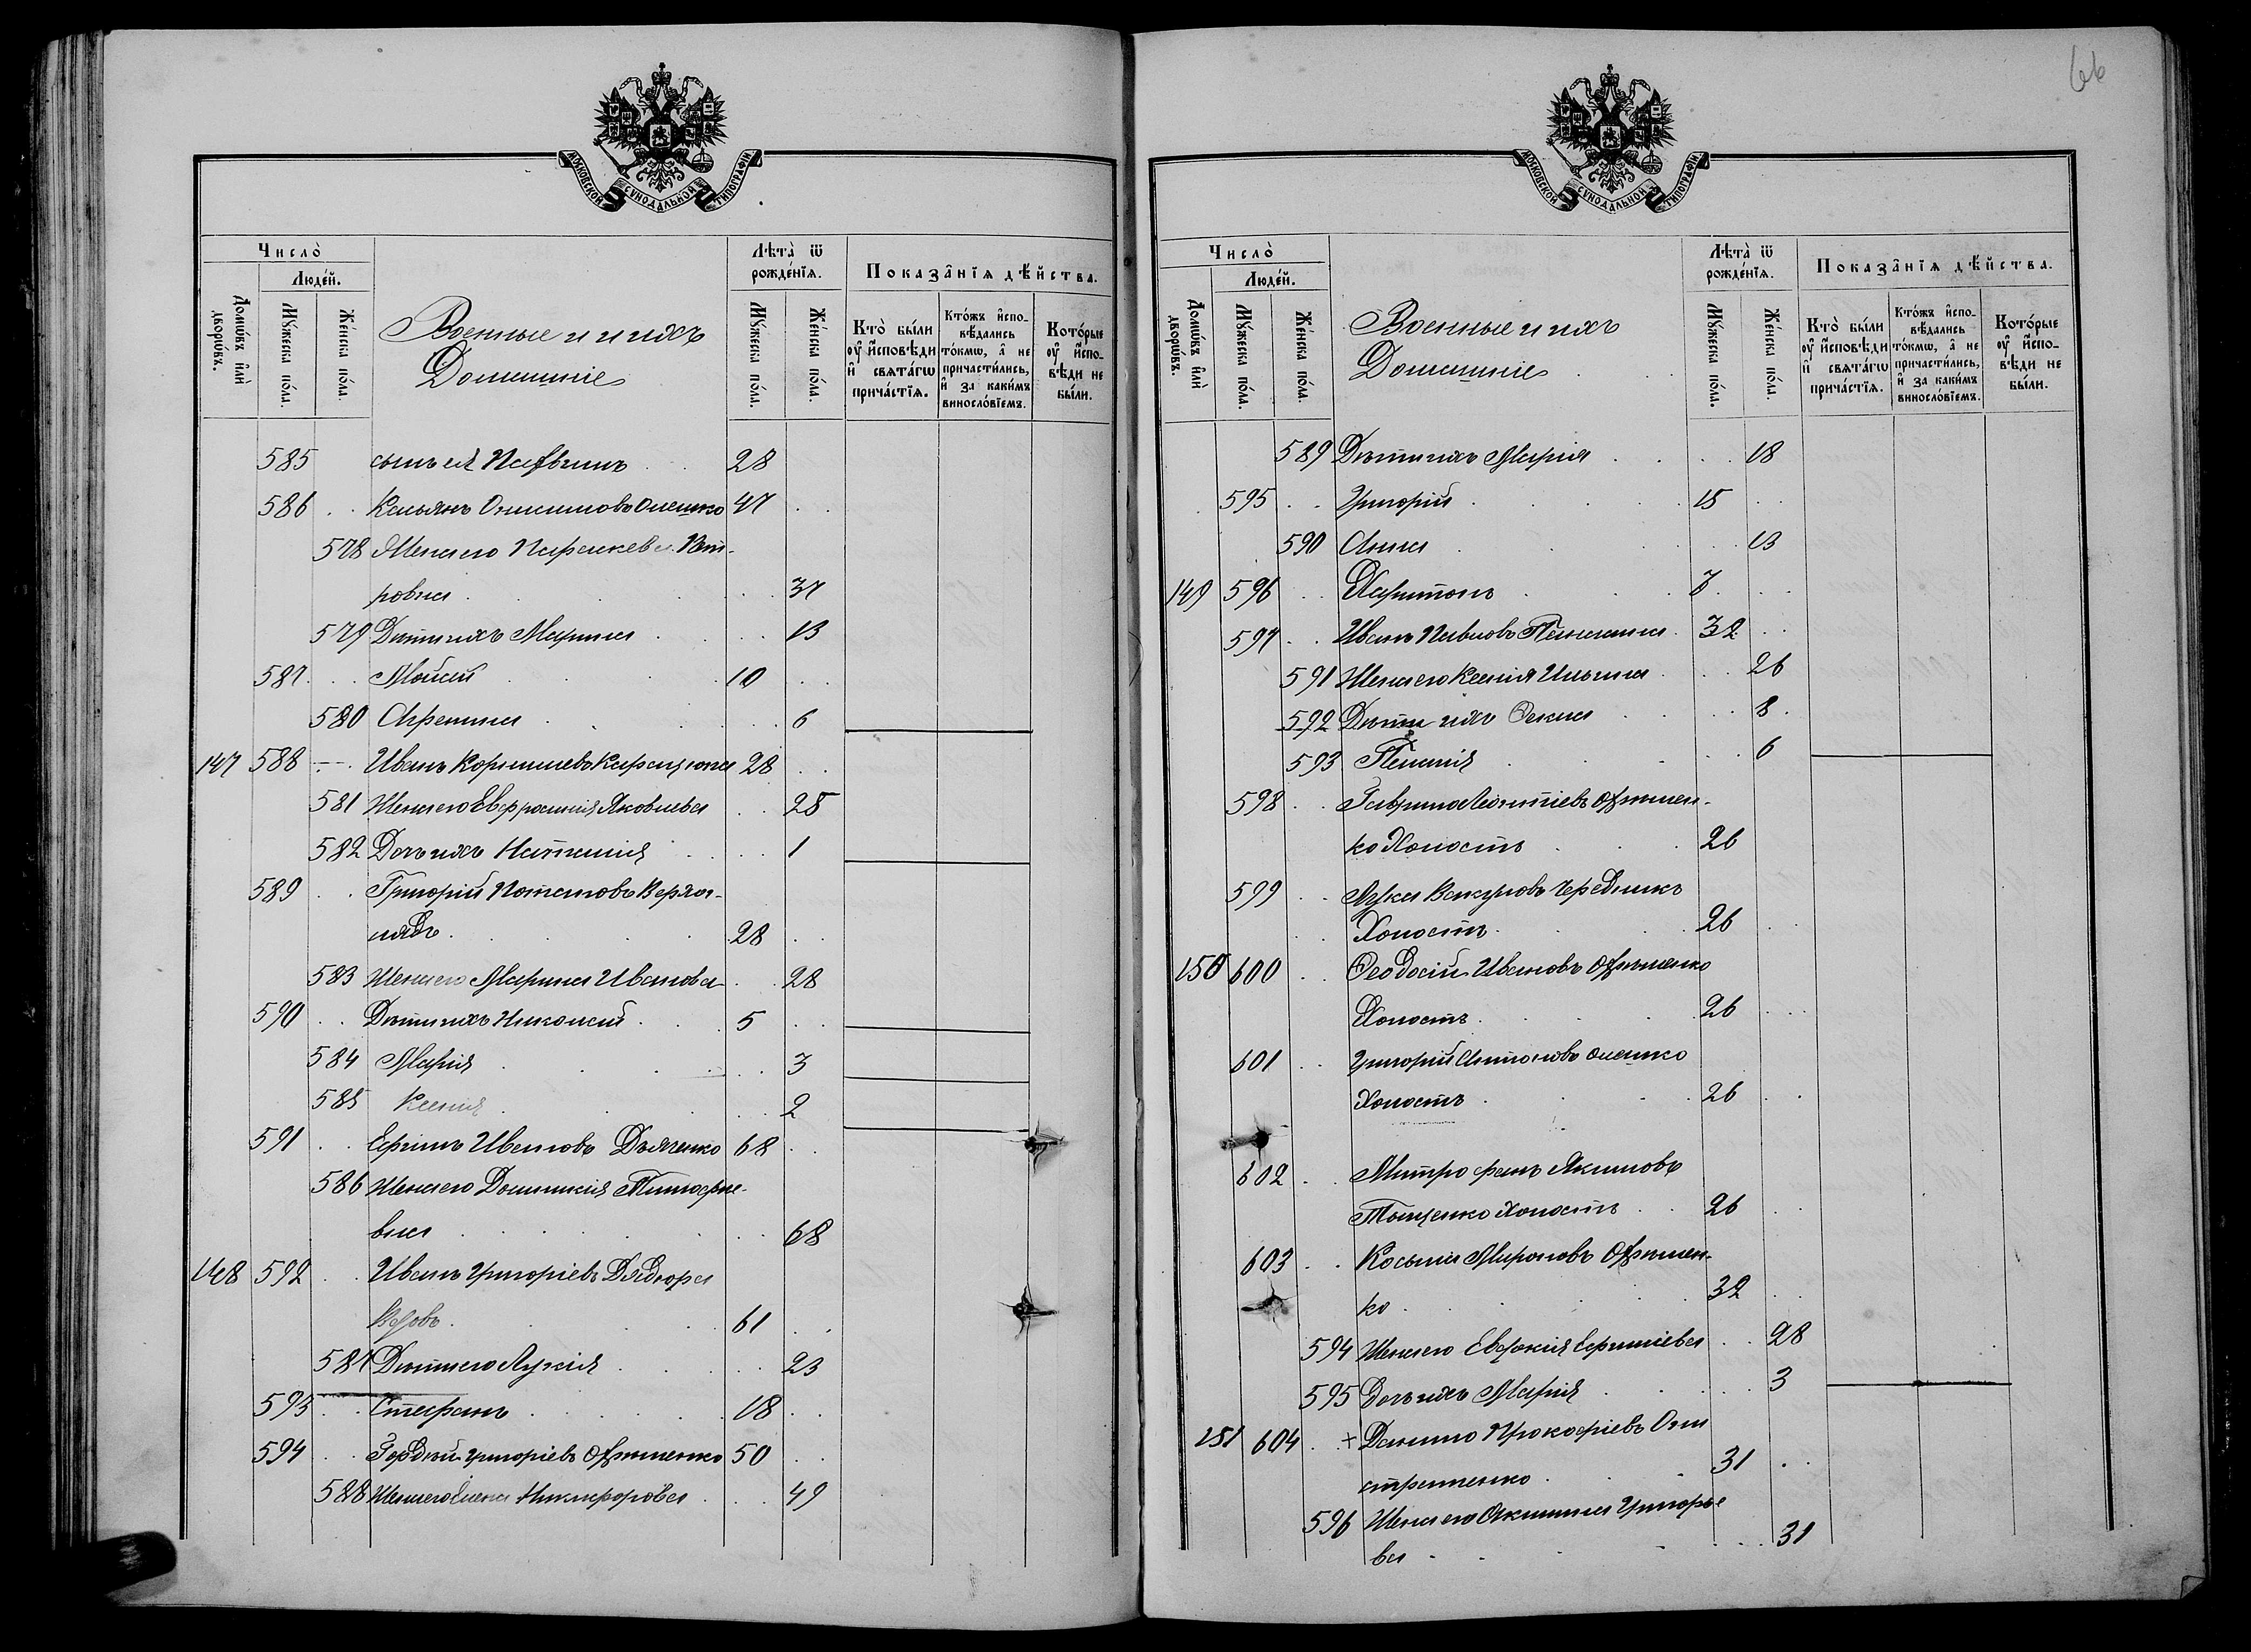 66
МОСКОВСКОЙ СѴНОДАЛЬНОЙ ТИПОГРАФІИ
Число̀
Люде́й.
Домѡ́въ и҆лѝ дворѡ́въ.
Мꙋ́жеска по́ла.
Же́нска по́ла.
Военные и и ихъ
Домашніе
Лѣта̀ ѿ рожде́нїѧ.
Мꙋ́жеска по́ла.
Же́нска по́ла.
Показа̑нїѧ дѣ́йства.
Кто̀ бы́ли оу҆ и҆сповѣ́ди и҆ свѧта́гѡ прича́стїѧ.
Кто́жъ и҆спо-вѣ́дались то́кмѡ, а҆ не причасти́лись, и҆ за каки́мъ виносло́вїемъ.
Кото́рые оу҆ и҆спо-вѣ́ди не бы́ли.
585 сынъ ея 28
586 Касьянъ Онисимовъ Олешко 47
578 Жена его Параскева Пет-
ровна 37
579 Дѣти ихъ Марина 13
587 Моисей 10
580 Агрепина 6
147 588 Иванъ 28
581 Жена его Евфросинія Яковлева 25
582 Дочь ихъ Наталія 1
589 Григорій Потаповъ Верхог-
лядъ 28
583 Жена его Марина Иванова 28
590 Дѣти ихъ Николай 5
584 Марія 3
585 Ксенія 2
591 Ефимъ Ивановъ Дьяченко 68
586 Жена его Домникія Тимофее-
вна 68
148 592 Иванъ Григоріевъ Дядюра
Вдовъ 61
587 Дѣти его Лукія 23
593 Стефанъ 18
594 Гордѣй Григоріевъ Ефименко 50
588 Жена его Елена Никифорова 49
МОСКОВСКОЙ СѴНОДАЛЬНОЙ ТИПОГРАФІИ
Число̀
Люде́й.
Домѡ́въ и҆лѝ дворѡ́въ.
Мꙋ́жеска по́ла.
Же́нска по́ла.
Военные и ихъ
Домашніе
Лѣта̀ ѿ рожде́нїѧ.
Мꙋ́жеска по́ла.
Же́нска по́ла.
Показа̑нїѧ дѣ́йства.
Кто̀ бы́ли оу҆ и҆сповѣ́ди и҆ свѧта́гѡ прича́стїѧ.
Кто́жъ и҆спо-вѣ́дались то́кмѡ, а҆ не причасти́лись, и҆ за каки́мъ виносло́вїемъ.
Кото́рые оу҆ и҆спо-вѣ́ди не бы́ли.
589 Дѣти ихъ Марія 18
595 Григорій 15
590 Анна 13
149 596 Харитонъ 7
597 Иванъ Павловъ 32
591 Жена его Ксенія Ильина 26
592 Дѣти ихъ Фекла 8
593 Пелагія 6
598 Гаврило Леонтіевъ Ефимен-
ко Холостъ 26
599 Лука Вакуловъ Чередникъ
Холостъ 26
150 600 Феодосій Ивановъ Ефименко
Холостъ 26
601 Григорій Антоновъ Олешко
Холостъ 26
602 Митрофанъ Якимовъ
Тыщенко Холостъ 26
603 Косьма Мироновъ Ефимен-
ко 32
594 Жена его Евдокія Ефиміева 28
595 Дочь ихъ Марія 3
151 604 + Данило Прокофіевъ
31
596 Жена его Акилина Григорье
ва 31